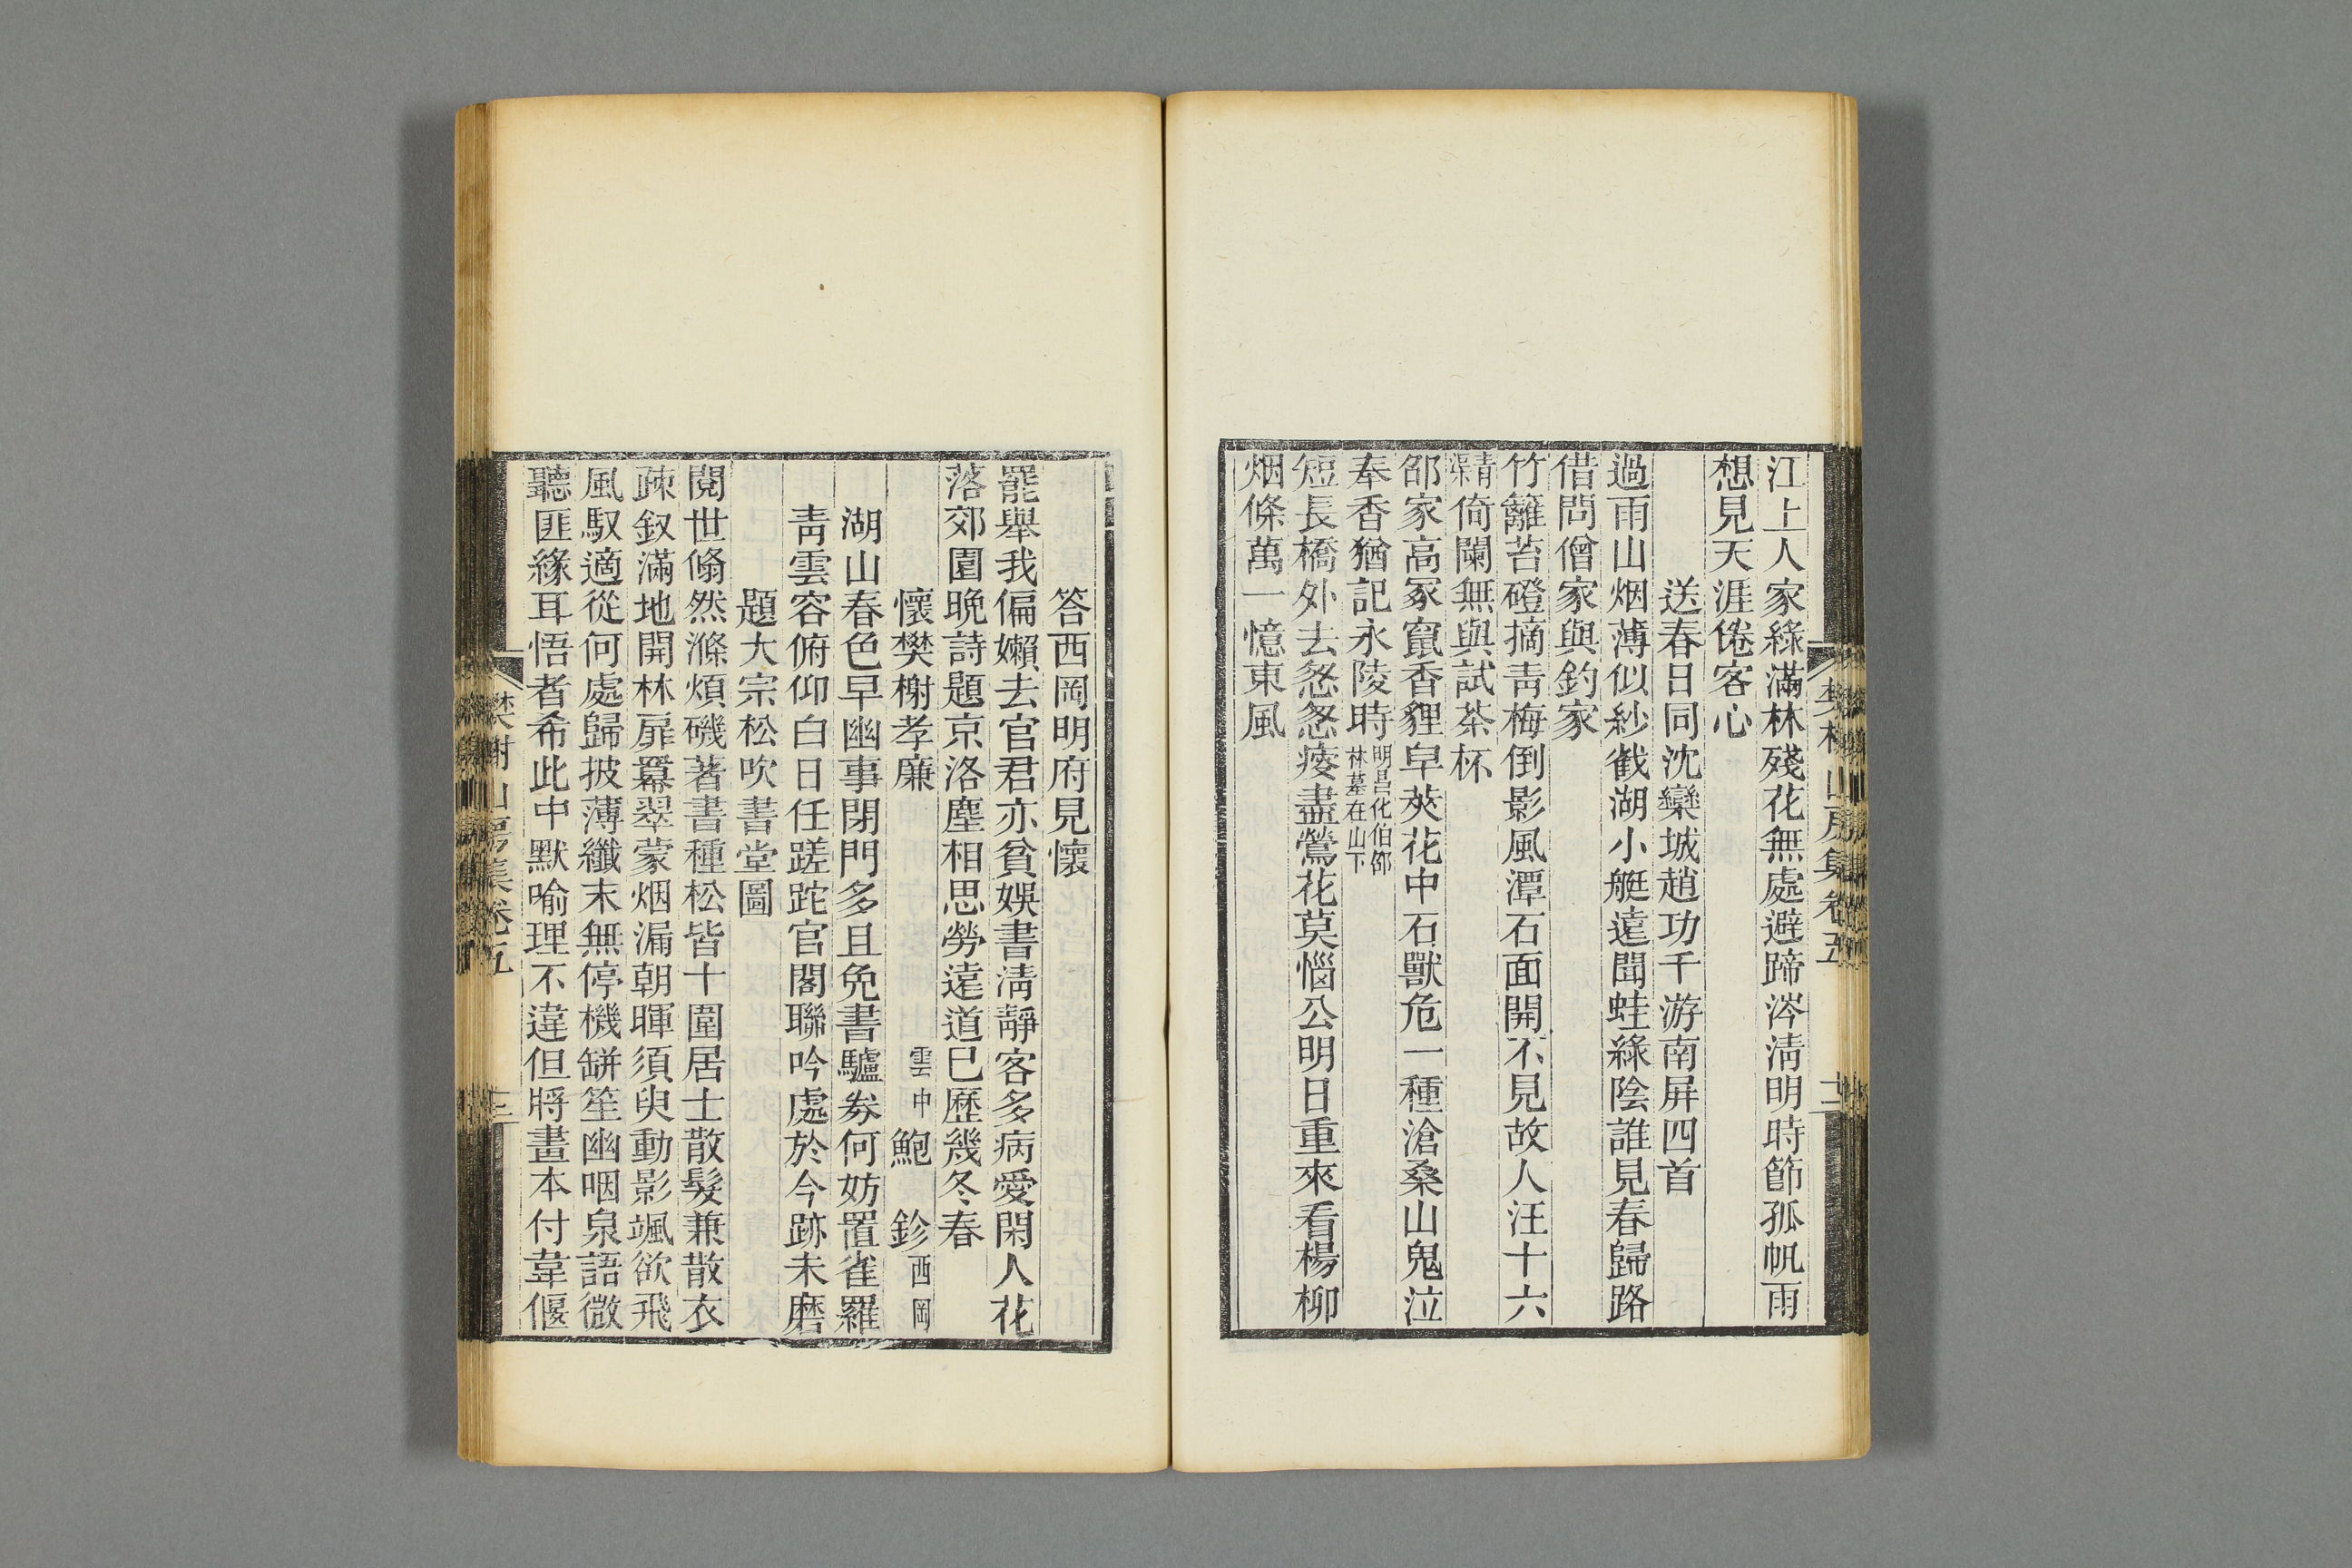 江上人家綠滿林殘花無處避蹄涔淸明時節孤帆雨
想見天涯倦客心
送春日同沈欒城趙功千游南屏四首
過雨山烟薄似紗截湖小艇遠聞蛙綠陰誰見春歸路
借問僧家與釣家
竹籬苔磴摘靑梅倒影風潭石面開不見故人汪十六
倚闌無與試茶杯
邵家高冢竄香貍皁莢花中石獸危一種滄桑山鬼泣
奉香猶記永陵時明昌化伯邵林墓在山下
短長橋外去怱怱痿盡鶯花莫惱公明日重來看楊柳
烟條萬一憶東風
樊榭山房集卷五
十二
答西岡明府見懷
罷舉我偏嬾去官君亦貧娛書淸靜客多病愛閑人花
落郊園晚詩題京洛塵相思勞遠道已歷幾冬春
懷樊榭孝廉 雲中 鮑 鉁 西岡
湖山春色早幽事閉門多且免書驢券何妨置雀羅
靑雲容俯仰白日任蹉跎官閣聯吟處於今跡未磨
題大宗松吹書堂圖
閱世翛然滌煩磯著書種松皆十圍居士散髮兼散衣
疎釵滿地開林扉羃翠蒙烟漏朝暉須臾動影颯欲飛
風馭適從何處歸披薄纖末無停機缾笙幽咽泉語微
聽匪緣耳悟者希此中默喻理不違但將畫本付韋偃
樊榭山房集卷五
十三